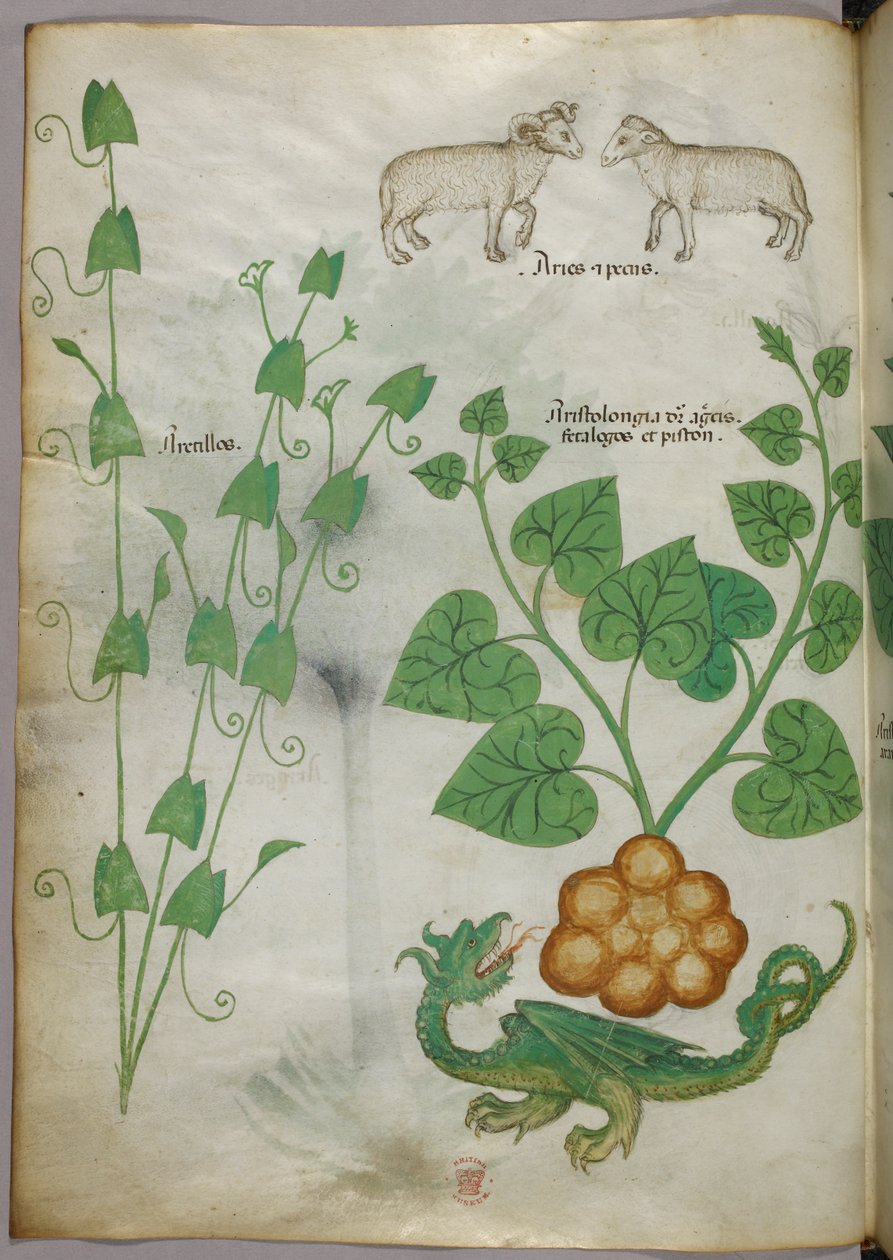 Aries ⁊ pecus.
Arctillos.
Aristolongia
fetalogos et piston.
BRITISH
MUSEUM